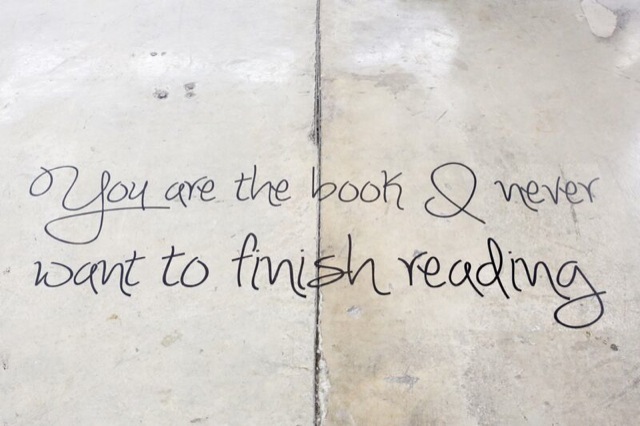 You are the book I never
want to finish reading